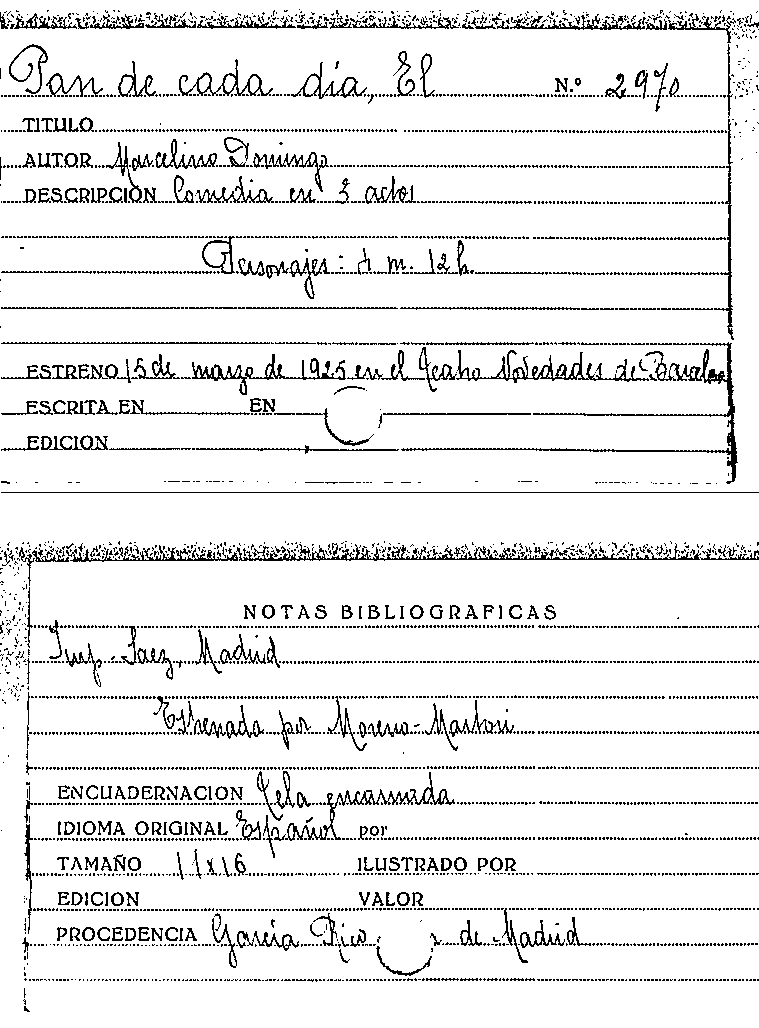 Pan de cada día, El N.º 2970
TITULO
AUTOR Marcelino Domingo
DESCRIPCIÓN Comedia en 3 actos
Personajes: m. 12 h.
ESTRENO 15 de marzo de 1925 en el Teatro Novedades de Barcelona
ESCRITA EN EN
EDICION
NOTAS BIBLIOGRAFICAS
Imp. Saez, Madrid
Estrenada por Moreno-Martori
ENCUADERNACION Tela encarnada
IDIOMA ORIGINAL Español por
TAMAÑO 11x16 ILUSTRADO POR
EDICION VALOR
PROCEDENCIA García Rico de Madrid